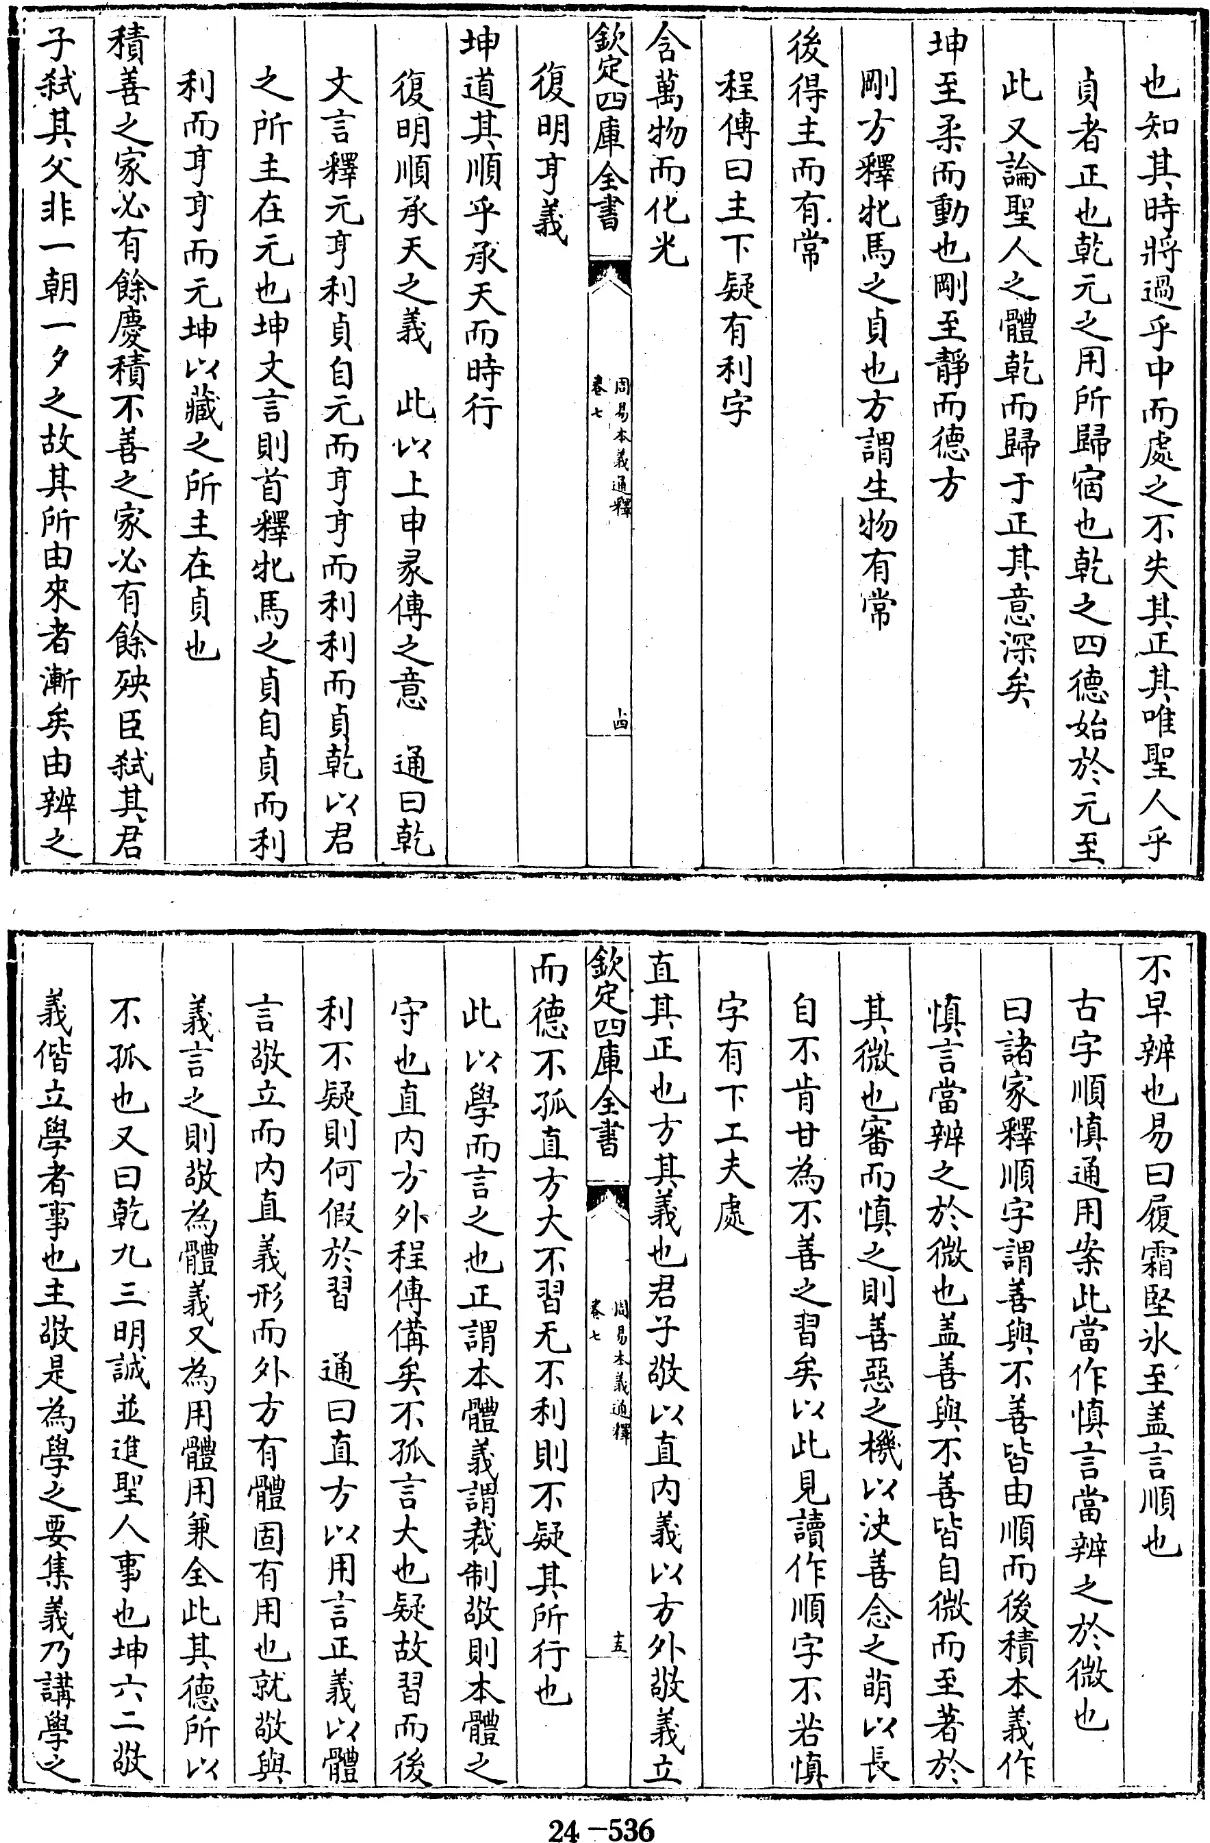 也知其時將過乎中而處之不失其正其唯聖人乎
貞者正也乾元之用所歸宿也乾之四德始於元至
此又論聖人之體乾而歸于正其意深矣
坤至柔而動也剛至靜而德方
剛方釋牝馬之貞也方謂生物有常
後得主而有常
程傳曰主下疑有利字
含萬物而化光
欽定四庫全書
周易本義通釋
卷七
十四
復明亨義
坤道其順乎承天而時行
復明順承天之義 此以上申彖傳之意 通曰乾
文言釋元亨利貞自元而亨亨而利利而貞乾以君
之所主在元也坤文言則首釋牝馬之貞自貞而利
利而亨亨而元坤以藏之所主在貞也
積善之家必有餘慶積不善之家必有餘殃臣弒其君
子弒其父非一朝一夕之故其所由來者漸矣由辨之
不早辨也易曰履霜堅氷至盖言順也
古字順慎通用案此當作慎言當辨之於微也
曰諸家釋順字謂善與不善皆由順而後積本義作
慎言當辨之於微也盖善與不善皆自微而至著於
其微也審而慎之則善惡之機以決善念之萌以長
自不肯甘為不善之習矣以此見讀作順字不若慎
字有下工夫處
直其正也方其義也君子敬以直內義以方外敬義立
欽定四庫全書
周易本義通釋
卷七
十五
而德不孤直方大不習无不利則不疑其所行也
此以學而言之也正謂本體義謂裁制敬則本體之
守也直內方外程傳備矣不孤言大也疑故習而後
利不疑則何假於習 通曰直方以用言正義以體
言敬立而內直義形而外方有體固有用也就敬與
義言之則敬為體義又為用體用兼全此其德所以
不孤也又曰乾九三明誠並進聖人事也坤六二敬
義偕立學者事也主敬是為學之要集義乃講學之
24-536